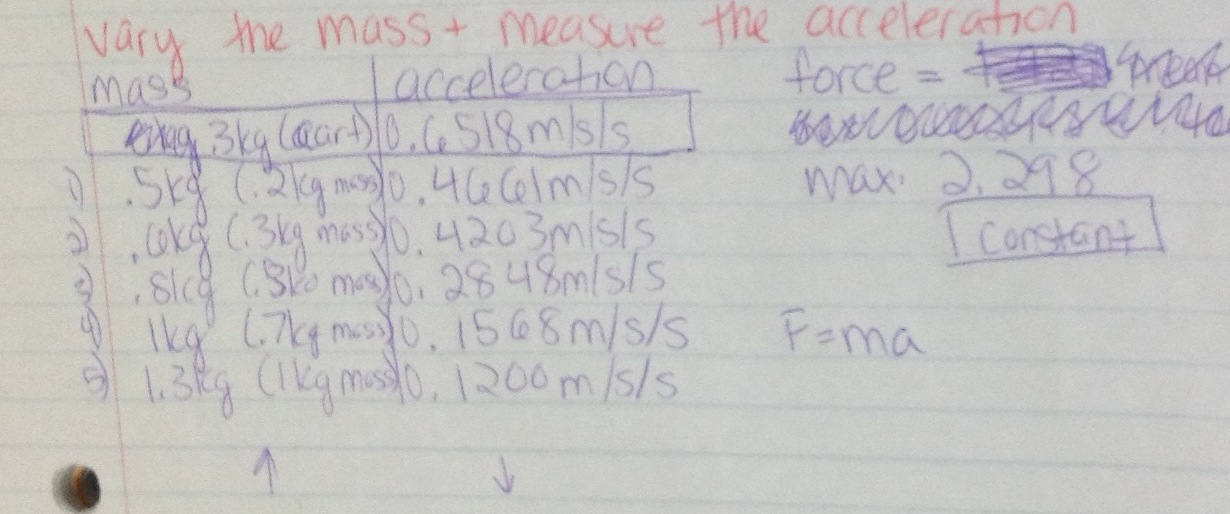 vary the mass + measure the acceleration
mass acceleration
.3kg (cart) 0.6518m/s/s
1) .5kg (.2kg mass) 0.4661m/s/s
2) .6kg (.3kg mass) 0.4203m/s/s
3) .8kg (.5kg mass) 0.2848m/s/s
4) 1kg (.7kg mass) 0.1568m/s/s
5) 1.3kg (1kg mass) 0.1200m/s/s
↑ ↓
force =
max. 2.298
constant
F=ma